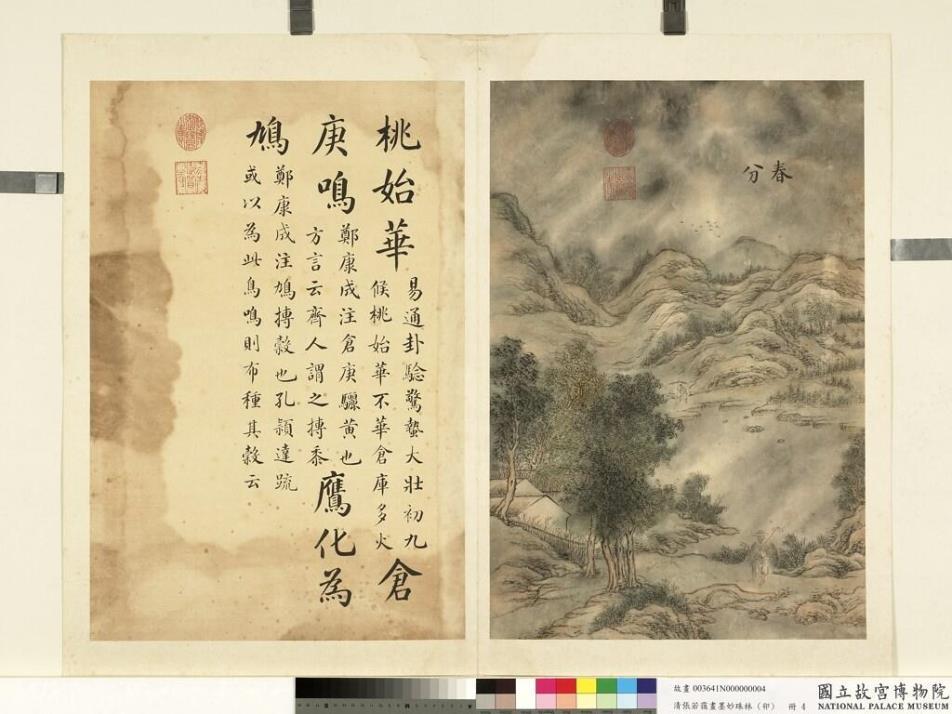 春分
桃始華
易通卦驗驚蟄大壯初九
候桃始華不華倉庫多火
倉
庚鳴
鄭康成注倉庚驪黃也
方言云齊人謂之摶黍
鷹化為
鳩
鄭康成注鳩搏穀也孔穎達疏
或以為此鳥鳴則布種其穀云
故畫 003641N000000004
清張若靄畫墨妙珠林（卯） 冊 4
國立故宮博物院
NATIONAL PALACE MUSEUM